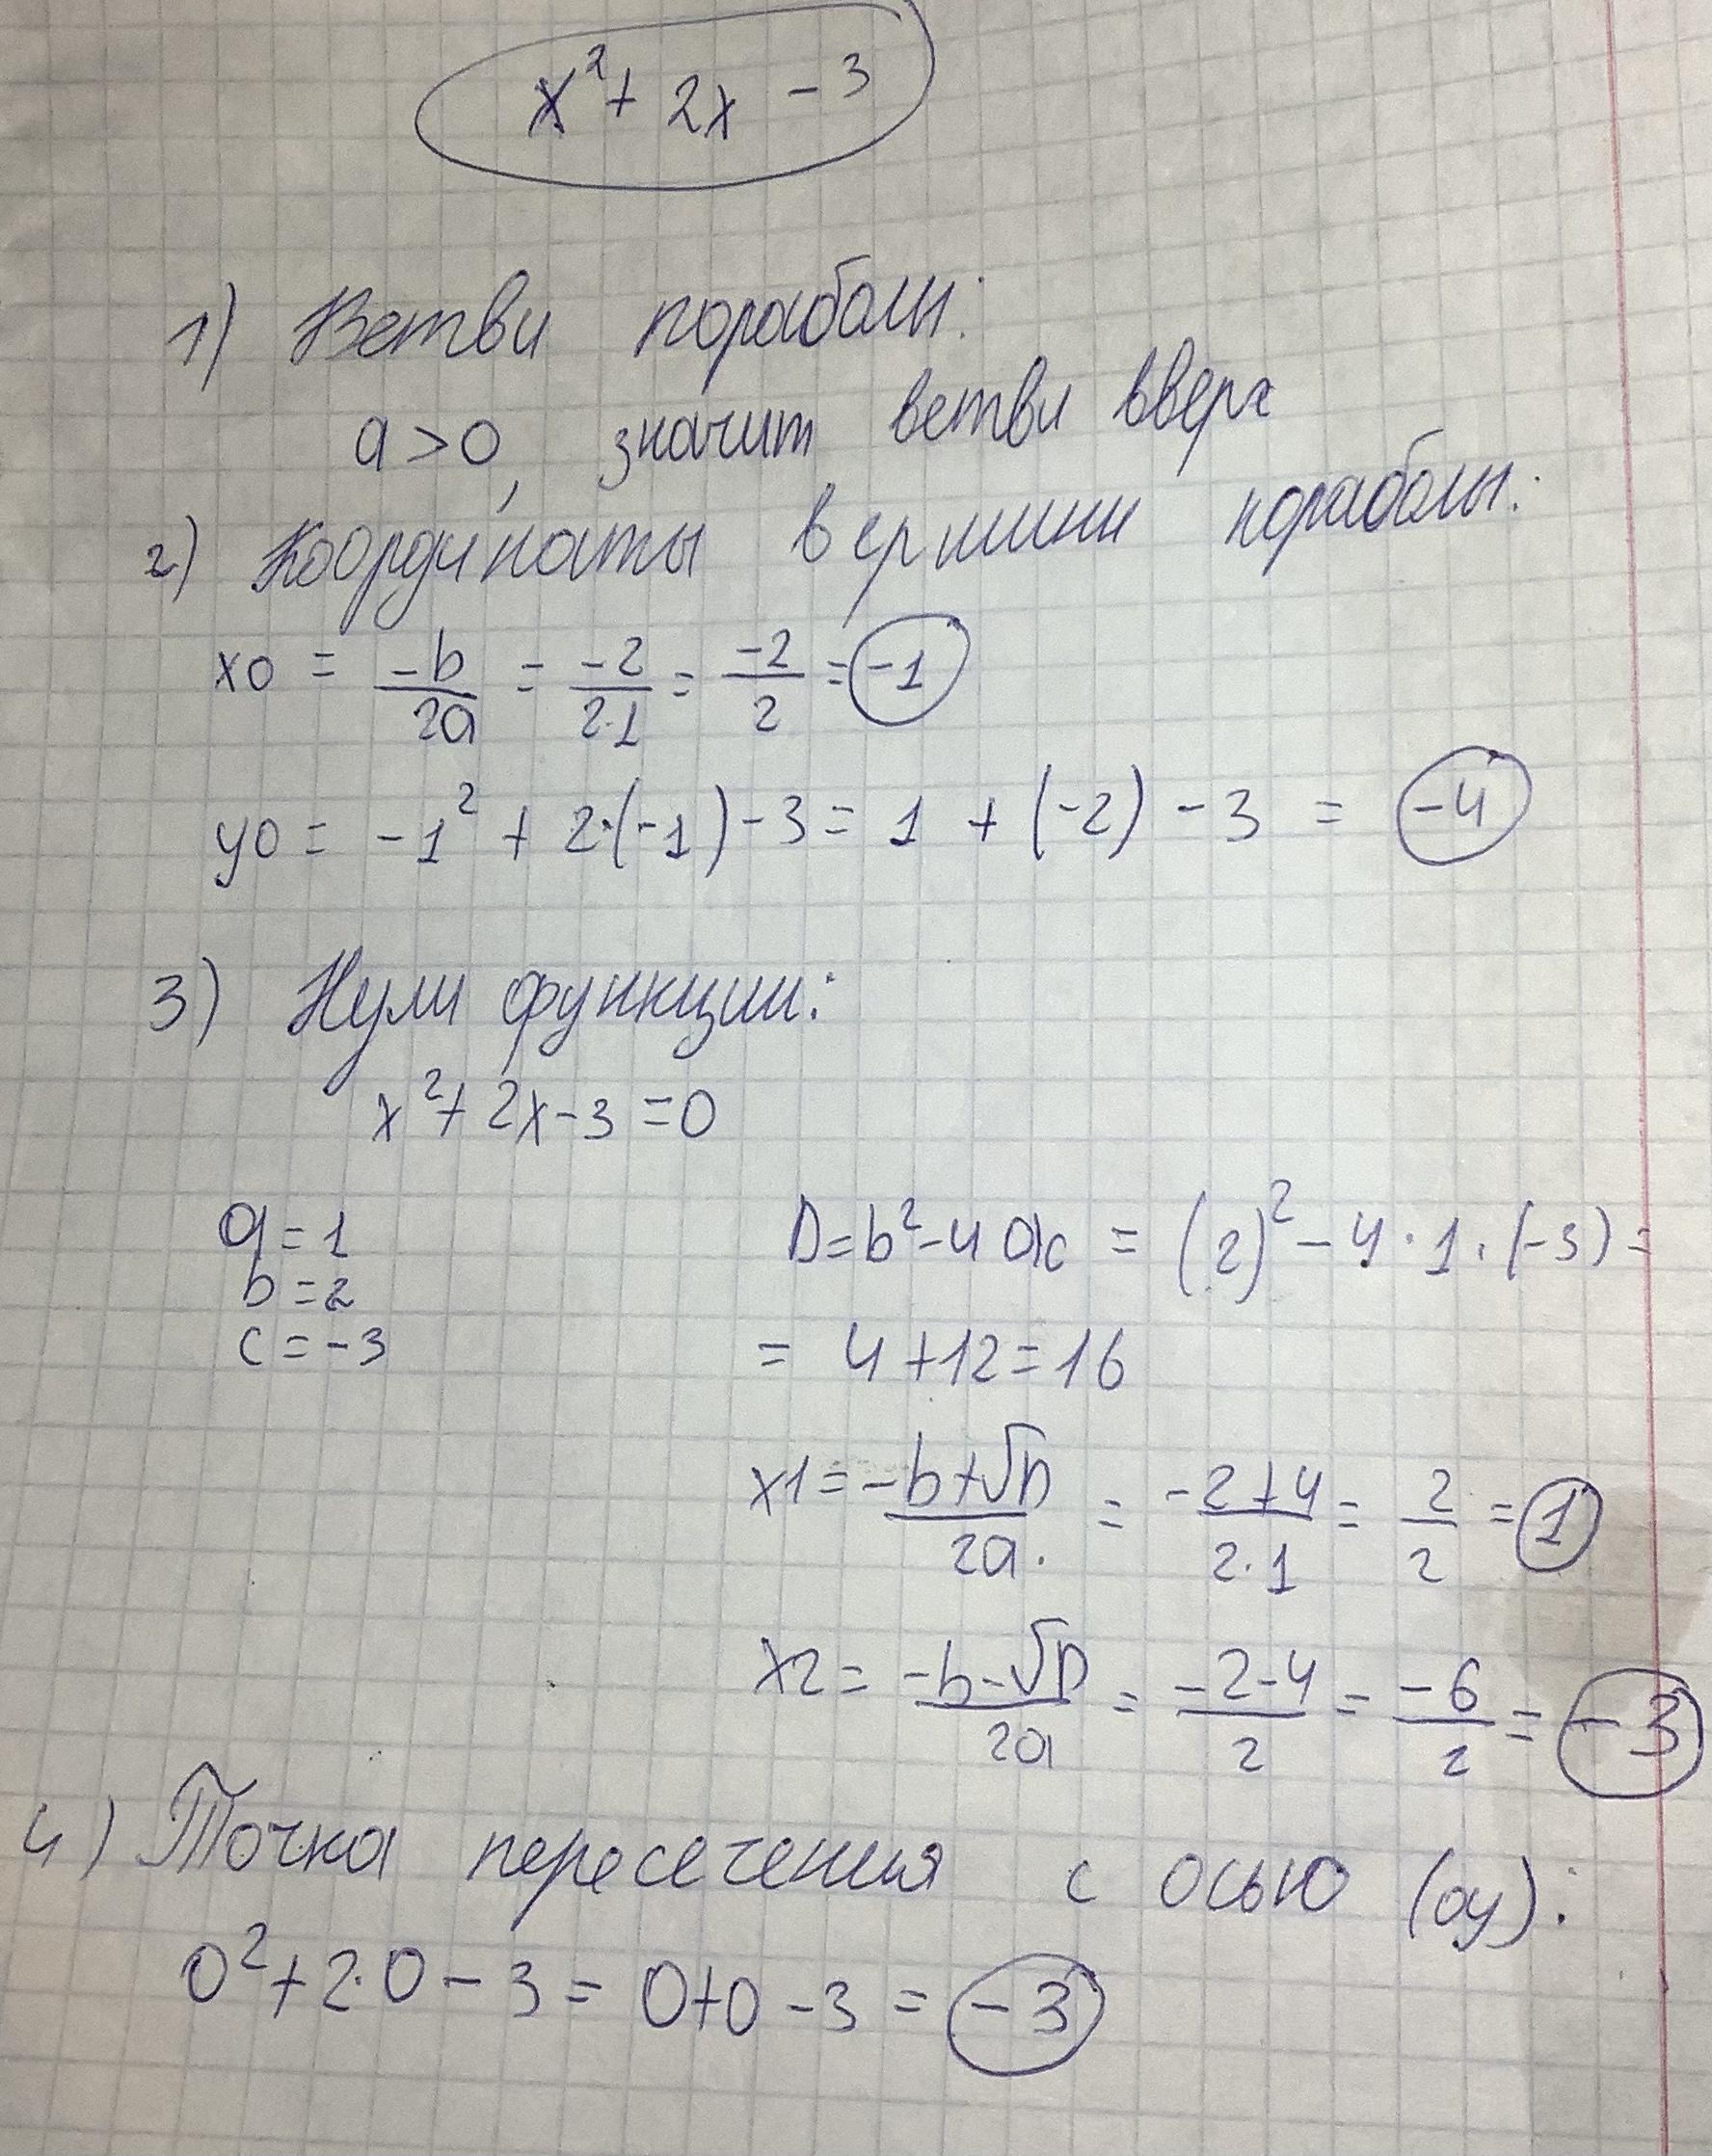 x² + 2x - 3
1) Ветви пораболы:
a > 0, значит ветви вверх
2) Координаты вершини пораболы:
x0 = -b/2a = -2/2·1 = -2/2 = -1
y0 = -1² + 2·(-1) - 3 = 1 + (-2) - 3 = -4
3) Нули функции:
x² + 2x - 3 = 0
a = 1
b = 2
c = -3
D = b² - 4ac = (2)² - 4 · 1 · (-3) =
= 4 + 12 = 16
x1 = -b + √D/2a = -2 + 4/2·1 = 2/2 = 1
x2 = -b - √D/2a = -2 - 4/2 = -6/2 = -3
4) Точка пересечения с осью (oy):
0² + 2·0 - 3 = 0 + 0 - 3 = -3